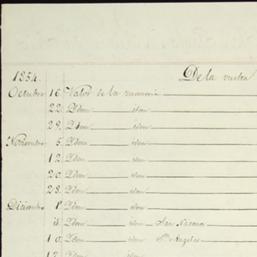 1854.
De la vuelta
Octubre 16 Valor de la
22 Idem idem
28 Idem idem
Noviembre 5 Idem idem
12 Idem idem
20 Idem idem
28 Idem idem
Diciembre 1º Idem idem
Idem idem San
10 Idem idem Angeles
Idem